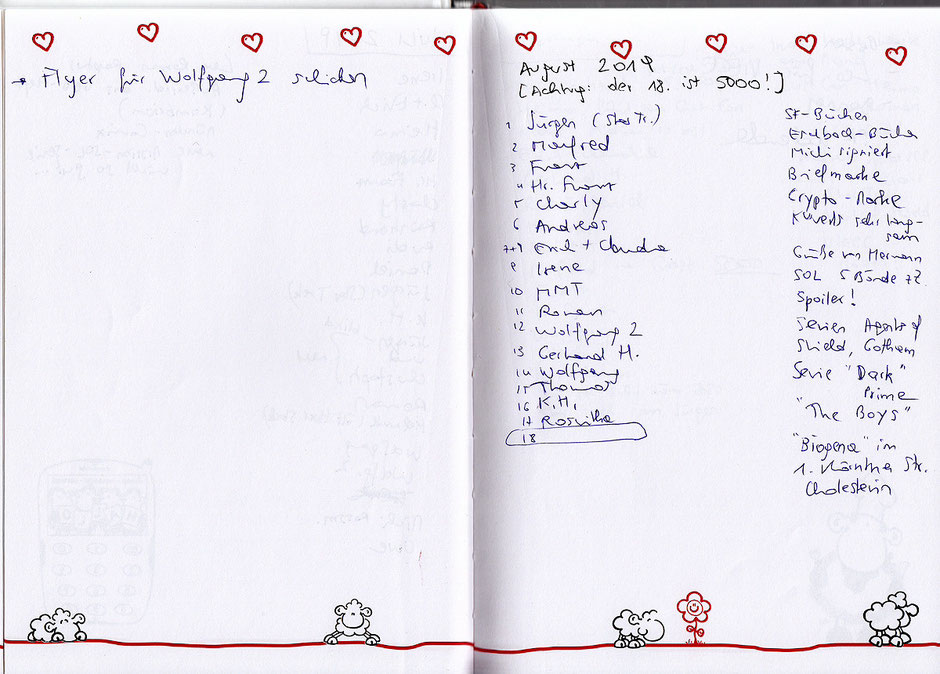 → Flyer für Wolfgang 2 schicken
August 2019
[Achtung: der 18. ist 5000!]
1 Jürgen (Star Tr.)
2 Manfred
3 Franz
4 Hr. Franz
5 Charly
6 Andreas
7+8 Erich + Claudia
9 Irene
10 MMT
11 Roman
12 Wolfgang 2
13 Gerhard H.
14 Wolfgang
15 Thomas
16 K.H.
17 Roswitha
18
SF-Bücher
Erdbach-Bücher
Michi signiert
Briefmarke
Crypto-Marke
Kuverts sehr lang-
sam
Grüße von Hermann
SOL 5 Bände
Spoiler!
Serien Agents of
Shield, Gotham
Serie "Dark"
Prime
"The Boys"
"Biogena" im
1. Kärntner Str.
Cholesterin